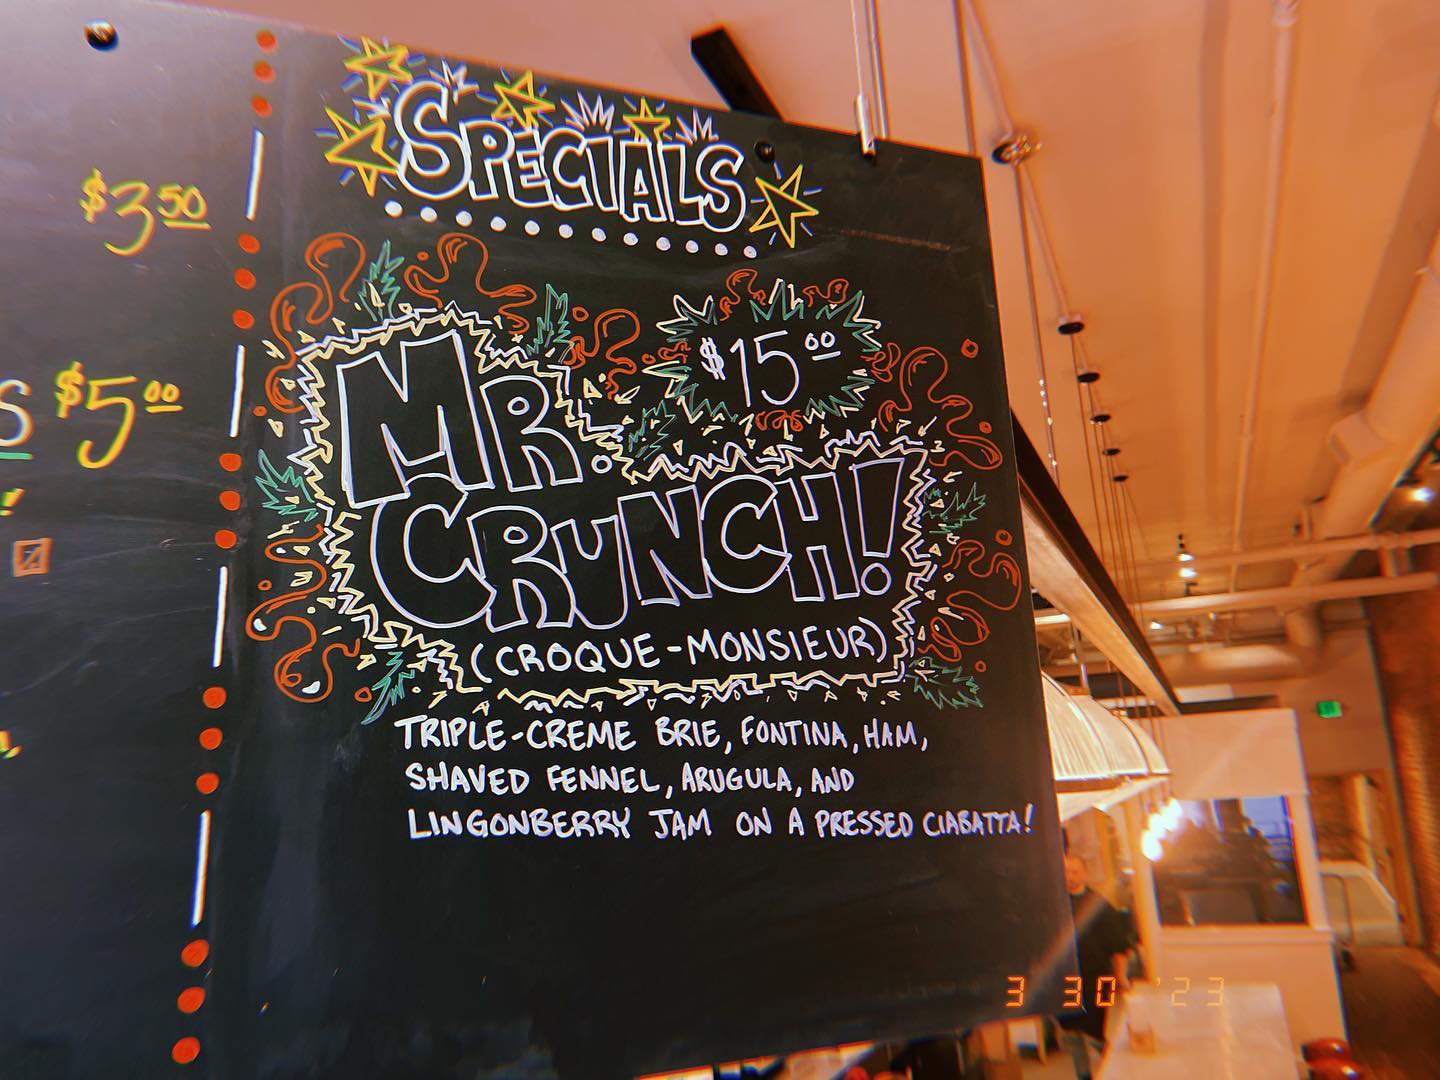 $3.50
S $5.00
!
SPECIALS
$15.00
MR.
CRUNCH!
(CROQUE-MONSIEUR)
TRIPLE-CREME BRIE, FONTINA, HAM,
SHAVED FENNEL, ARUGULA, AND
LINGONBERRY JAM ON A PRESSED CIABATTA!
3 30 '23